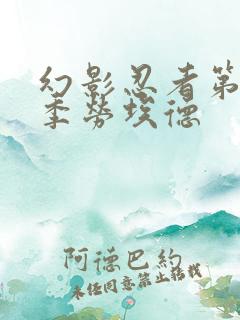 幻影忍者第
季劳埃德
阿德巴约
未经同意禁止搭载